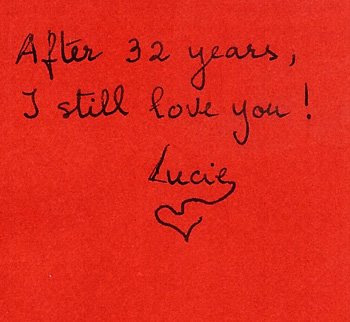 After 32 years,
I still love you!
Lucie